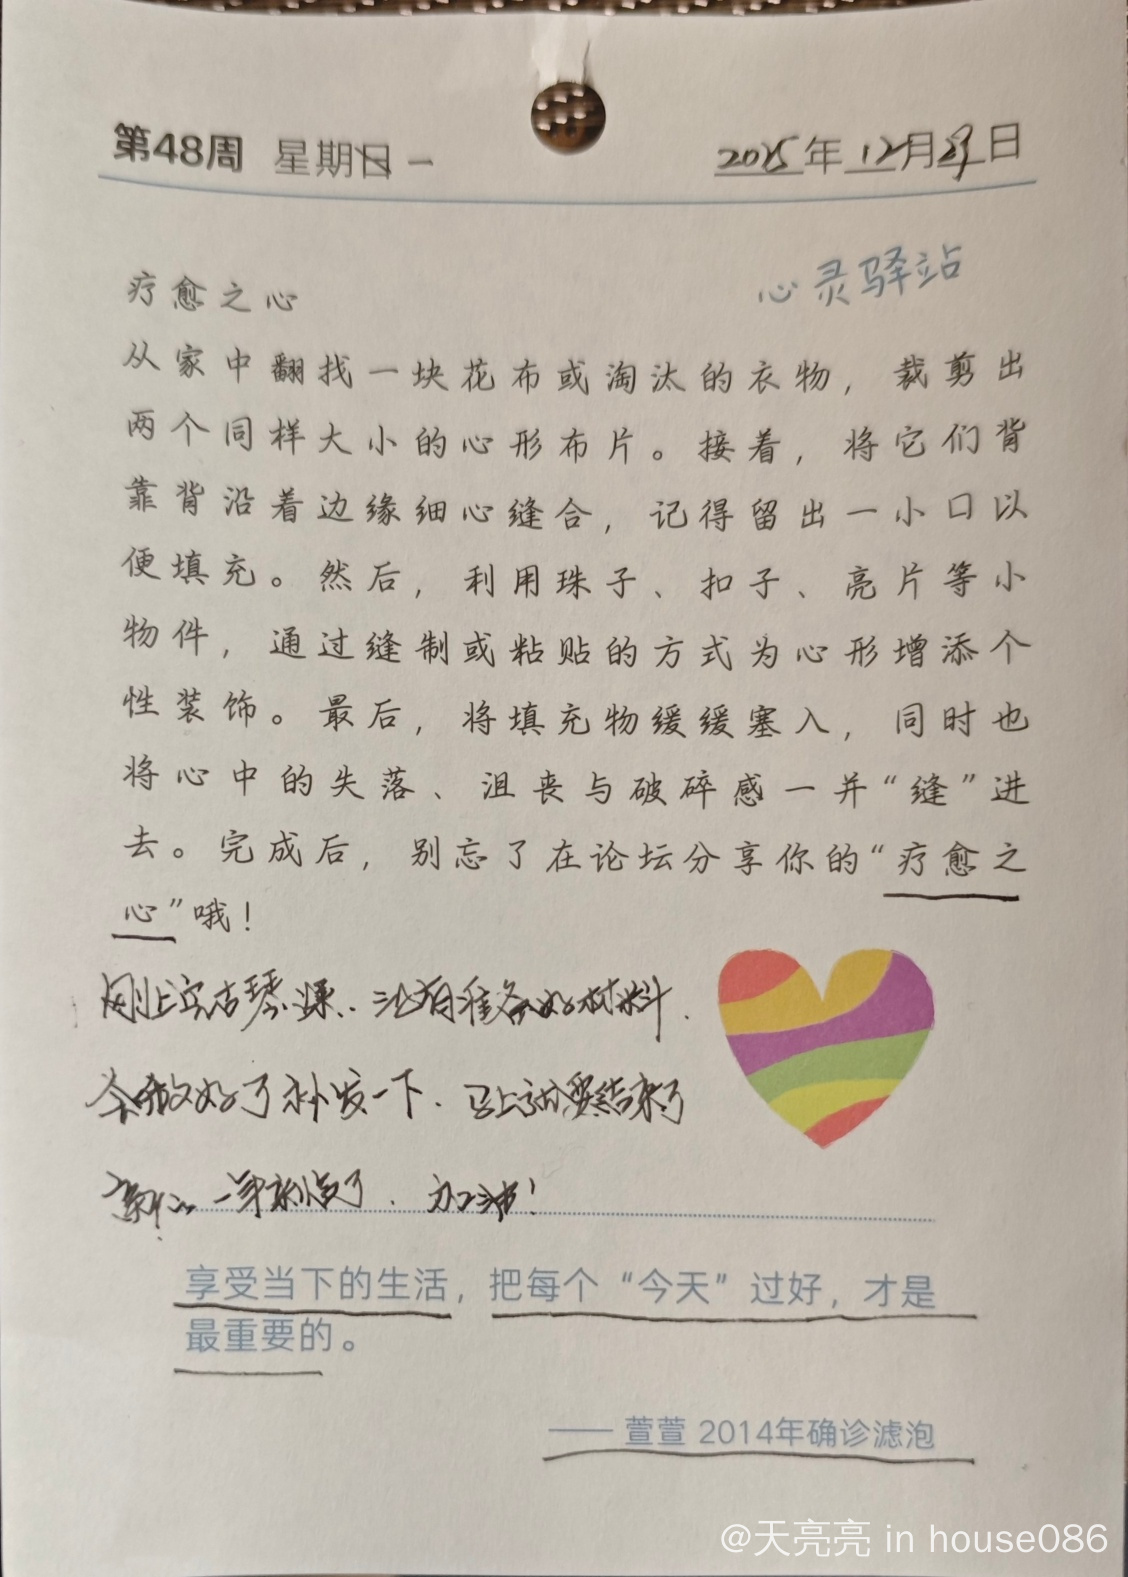 第48周 星期日 一
2025年12月29日
心灵驿站
疗愈之心
从家中翻找一块花布或淘汰的衣物，裁剪出
两个同样大小的心形布片。接着，将它们背
靠背沿着边缘细心缝合，记得留出一小口以
便填充。然后，利用珠子、扣子、亮片等小
物件，通过缝制或粘贴的方式为心形增添个
性装饰。最后，将填充物缓缓塞入，同时也
将心中的失落、沮丧与破碎感一并“缝”进
去。完成后，别忘了在论坛分享你的“疗愈之
心”哦！
刚上完古琴课..没有准备好材料.
做好了补发一下.马上就要结束了
一年 了.加油!
享受当下的生活，把每个“今天”过好，才是
最重要的。
—— 萱萱 2014年确诊滤泡
@天亮亮 in house086